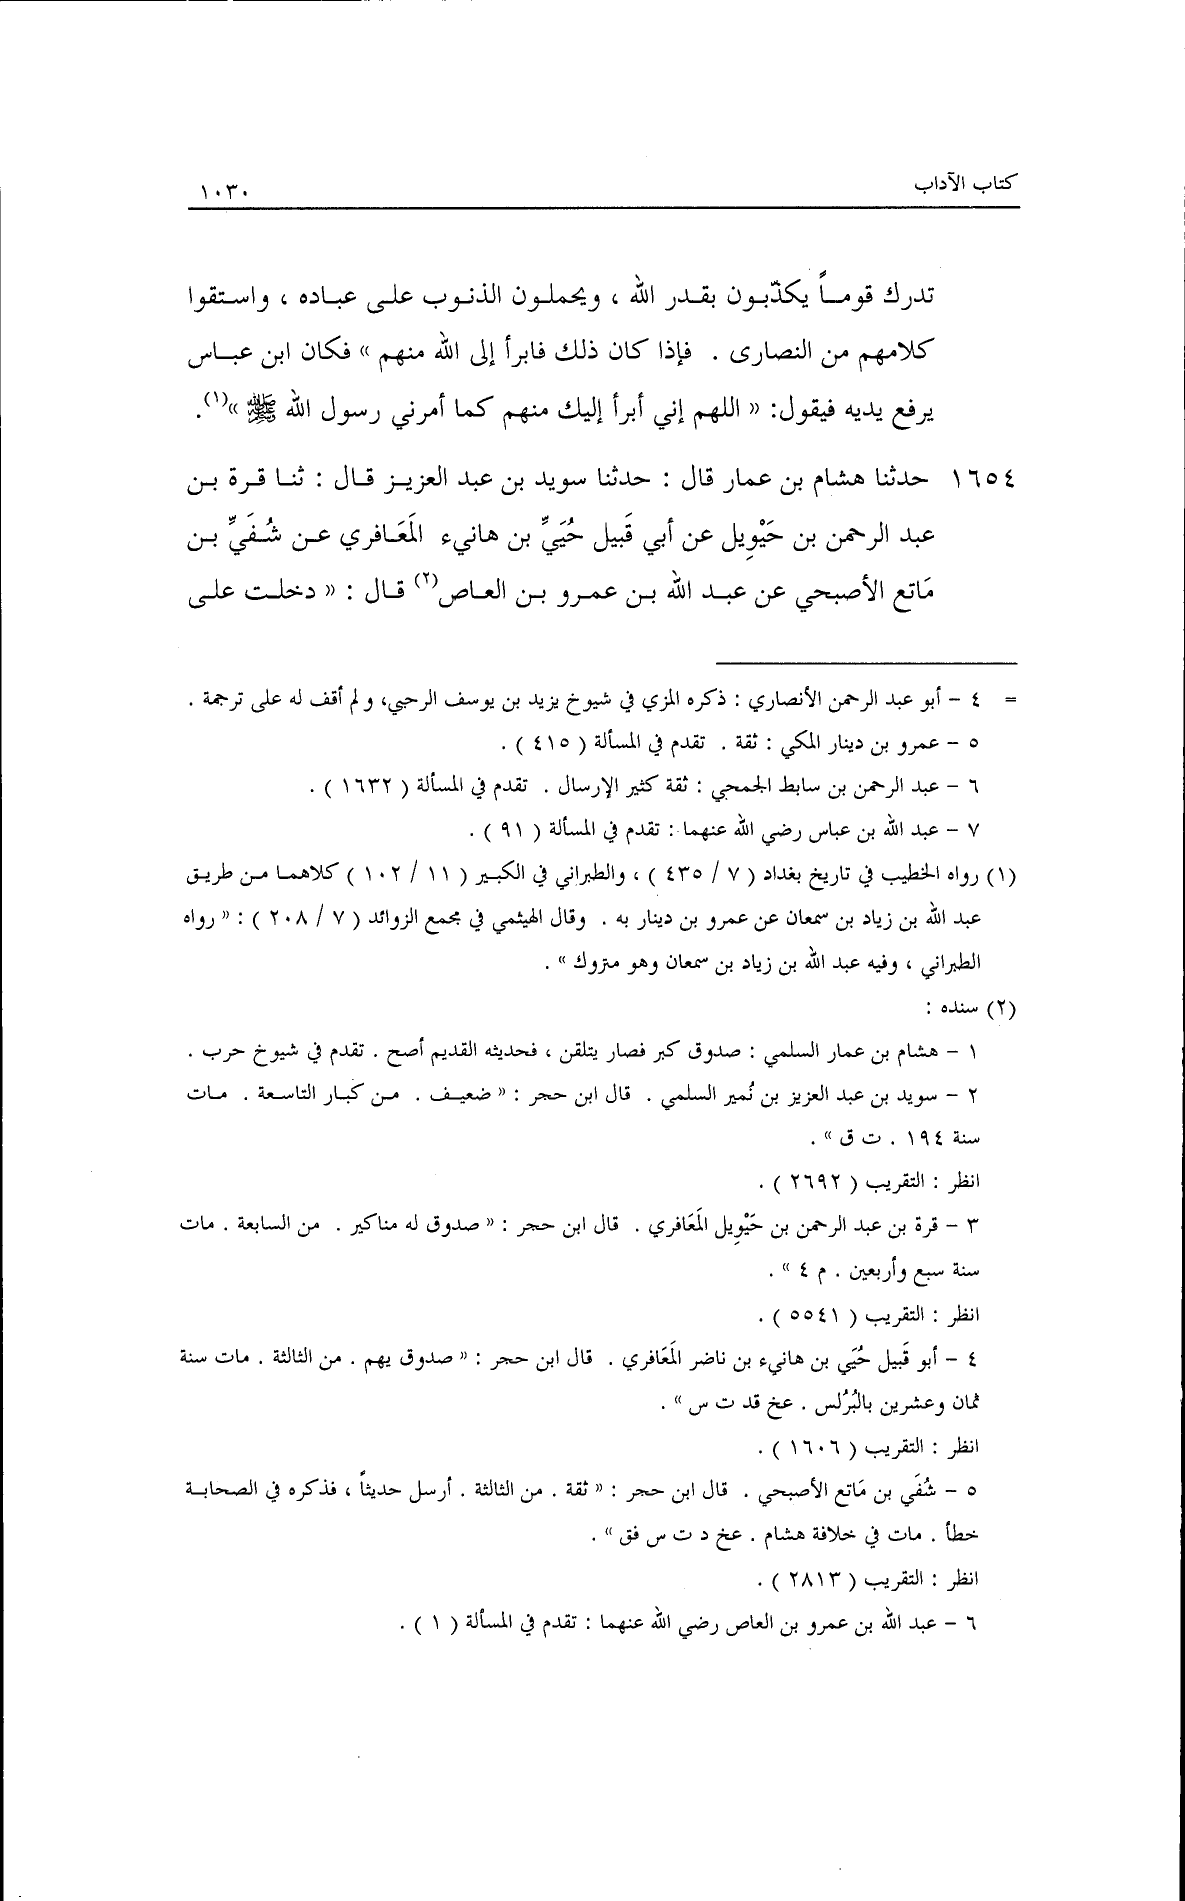 كتاب الآداب ١٠٣٠
تدرك قوماً يكذّبون بقدر الله ، ويحملون الذنوب على عباده ، واستقوا
كلامهم من النصارى . فإذا كان ذلك فابرأ إلى الله منهم » فكان ابن عباس
يرفع يديه فيقول: « اللهم إني أبرأ إليك منهم كما أمرني رسول الله ﷺ »(١).
١٦٥٤ حدثنا هشام بن عمار قال : حدثنا سويد بن عبد العزيز قال : ثنا قرة بن
عبد الرحمن بن حَيْوِيل عن أبي قَبيل حُيَيِّ بن هانيء المَعَافري عن شُفَيِّ بن
مَاتع الأصبحي عن عبد الله بن عمرو بن العاص(٢) قال : « دخلت على
= ٤ - أبو عبد الرحمن الأنصاري : ذكره المزي في شيوخ يزيد بن يوسف الرحبي، ولم أقف له على ترجمة .
٥ - عمرو بن دينار المكي : ثقة . تقدم في المسألة ( ٤١٥ ) .
٦ - عبد الرحمن بن سابط الجمحي : ثقة كثير الإرسال . تقدم في المسألة ( ١٦٣٢ ) .
٧ - عبد الله بن عباس رضي الله عنهما : تقدم في المسألة ( ٩١ ) .
(١) رواه الخطيب في تاريخ بغداد ( ٧ / ٤٣٥ ) ، والطبراني في الكبير ( ١١ / ١٠٢ ) كلاهما من طريق
عبد الله بن زياد بن سمعان عن عمرو بن دينار به . وقال الهيثمي في مجمع الزوائد ( ٧ / ٢٠٨ ) : « رواه
الطبراني ، وفيه عبد الله بن زياد بن سمعان وهو متروك » .
(٢) سنده :
١ - هشام بن عمار السلمي : صدوق كبر فصار يتلقن ، فحديثه القديم أصح . تقدم في شيوخ حرب .
٢ - سويد بن عبد العزيز بن نُمير السلمي . قال ابن حجر : « ضعيف . من كبار التاسعة . مات
سنة ١٩٤ . ت ق » .
انظر : التقريب ( ٢٦٩٢ ) .
٣ - قرة بن عبد الرحمن بن حَيْوِيل المَعَافري . قال ابن حجر : « صدوق له مناكير . من السابعة . مات
سنة سبع وأربعين . م ٤ » .
انظر : التقريب ( ٥٥٤١ ) .
٤ - أبو قَبيل حُيَي بن هانيء بن ناضر المَعَافري . قال ابن حجر : « صدوق يهم . من الثالثة . مات سنة
ثمان وعشرين بالبُرُلس . عخ قد ت س » .
انظر : التقريب ( ١٦٠٦ ) .
٥ - شُفَي بن مَاتع الأصبحي . قال ابن حجر : « ثقة . من الثالثة . أرسل حديثاً ، فذكره في الصحابة
خطأ . مات في خلافة هشام . عخ د ت س فق » .
انظر : التقريب ( ٢٨١٣ ) .
٦ - عبد الله بن عمرو بن العاص رضي الله عنهما : تقدم في المسألة ( ١ ) .